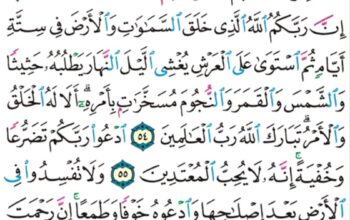 إِنَّ رَبَّكُمُ ٱللَّهُ ٱلَّذِى خَلَقَ ٱلسَّمَٰوَٰتِ وَٱلْأَرْضَ فِى سِتَّةِ
أَيَّامٍ ثُمَّ ٱسْتَوَىٰ عَلَى ٱلْعَرْشِ يُغْشِى ٱلَّيْلَ ٱلنَّهَارَ يَطْلُبُهُۥ حَثِيثًا
وَٱلشَّمْسَ وَٱلْقَمَرَ وَٱلنُّجُومَ مُسَخَّرَٰتٍۭ بِأَمْرِهِۦٓ ۗ أَلَا لَهُ ٱلْخَلْقُ
وَٱلْأَمْرُ ۗ تَبَارَكَ ٱللَّهُ رَبُّ ٱلْعَٰلَمِينَ ٥٤ ٱدْعُوا۟ رَبَّكُمْ تَضَرُّعًا
وَخُفْيَةً ۚ إِنَّهُۥ لَا يُحِبُّ ٱلْمُعْتَدِينَ ٥٥ وَلَا تُفْسِدُوا۟ فِى
ٱلْأَرْضِ بَعْدَ إِصْلَٰحِهَا وَٱدْعُوهُ خَوْفًا وَطَمَعًا ۚ إِنَّ رَحْمَتَ